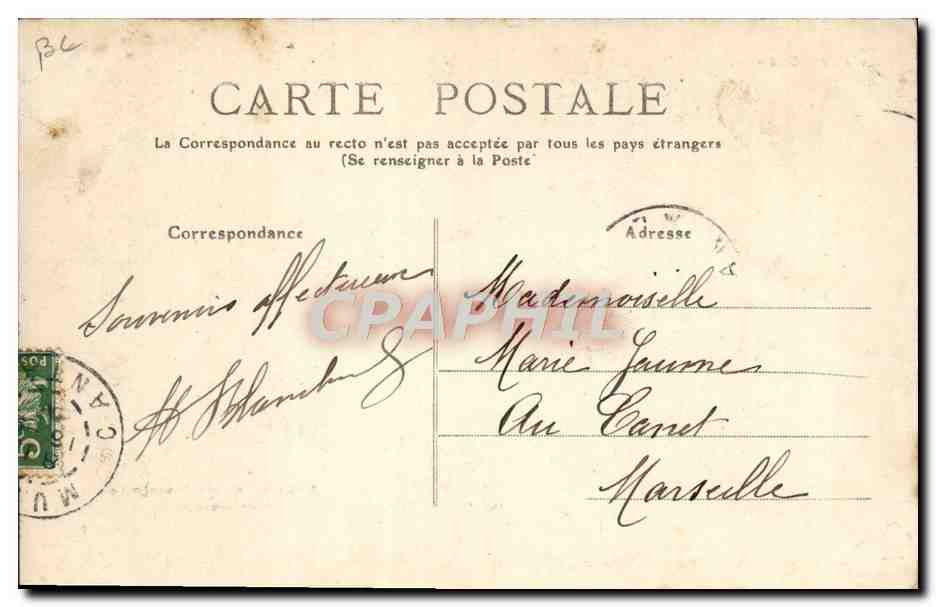 BL
CARTE POSTALE
La Correspondance au recto n'est pas acceptée par tous les pays étrangers
(Se renseigner à la Poste
Correspondance
Adresse
Souvenirs affectueux
Mademoiselle
CPAPHIL
Marie Jaume
Au Canet
Marseille
POS
5
CAN
MU